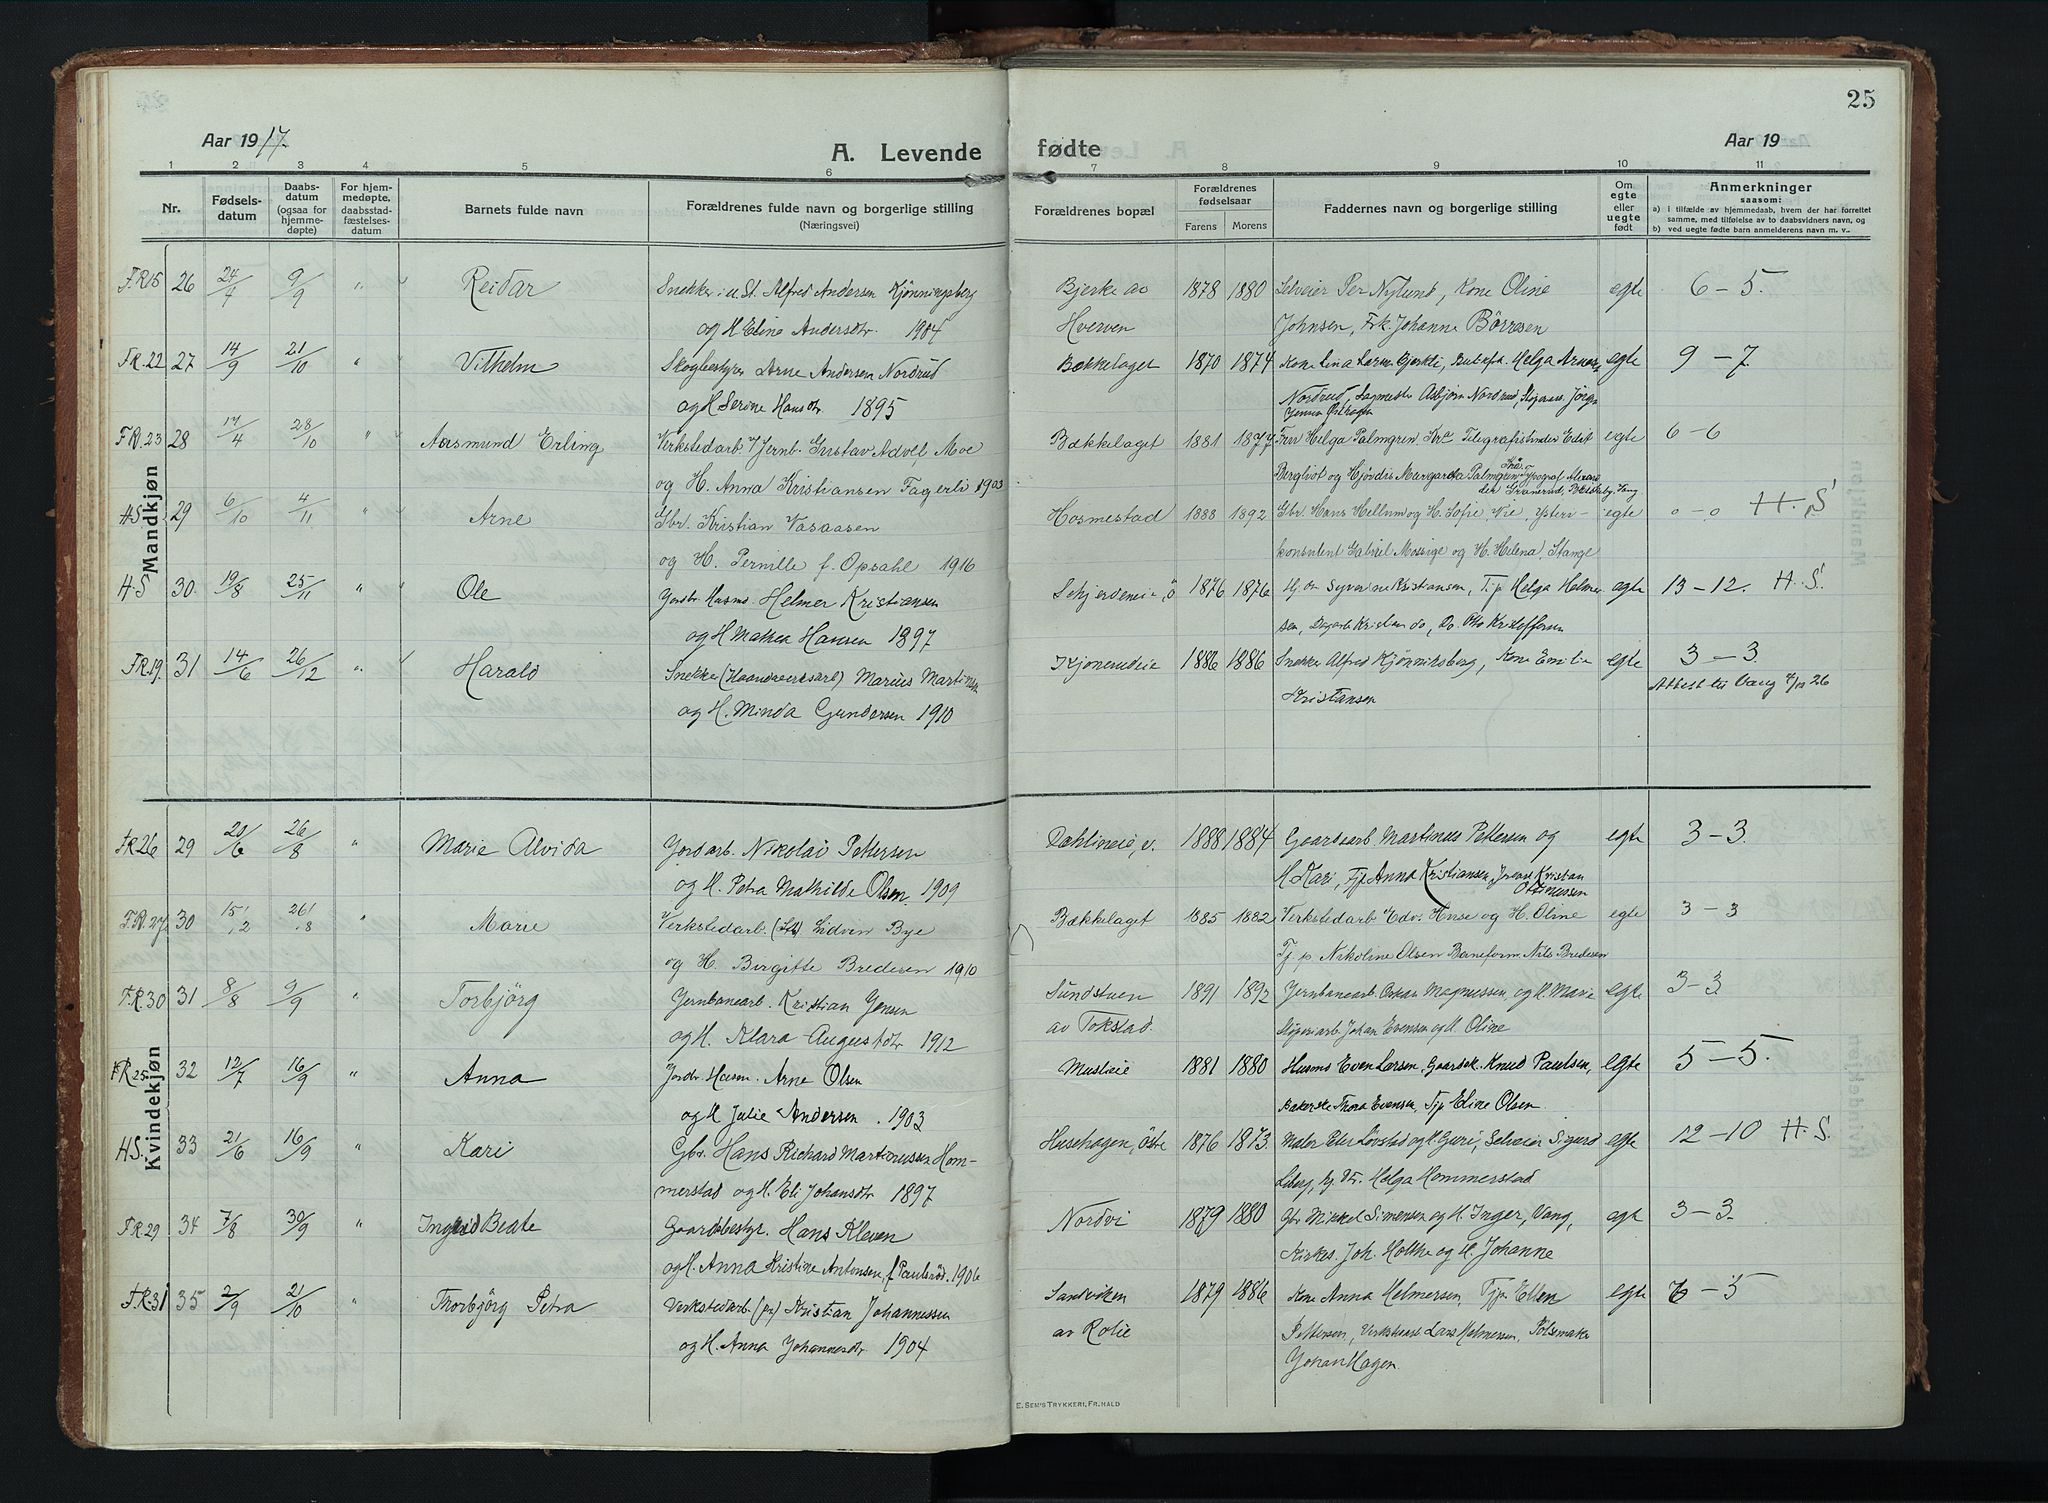 25
Aar 1917.
A. Levende fødte
Aar 19
1 2 3 4 5 6 7 8 9 10 11
Nr.
Fødsels-
datum
Daabs-
datum
(ogsaa for
hjemme-
døpte)
For hjem-
medøpte,
daabsstad-
fæstelses-
datum
Barnets fulde navn
Forældrenes fulde navn og borgerlige stilling
(Næringsvei)
Forældrenes bopæl
Forældrenes
fødselsaar
Farens Morens
Faddernes navn og borgerlige stilling
Om
egte
eller
uegte
født
Anmerkninger
saasom:
a) i tilfælde av hjemmedaab, hvem der har forrettet
samme, med tilføielse av to daabsvidners navn, og
b) ved uegte fødte barn anmelderens navn m. v..
Mandkjøn
F.R.18 26 24/7 9/9 " Reidar Snekker i u. St. Alfred Andersen Kjønningsberg Bjerke av 1878 1880 Selveier Per Nylund, Kone Oline egte 6 – 5.
og H Eline Andersdtr. 1904 Hverven Johnsen, Frk. Johanne Börresen
FR.22 27 14/9 21/10 " Vilhelm Skogbestyrer Arne Andersen Nordrud Bækkelaget 1870 1874 Kone Lina Larsen Bjerkli, Helga egte 9 – 7.
og H Serine Hansdtr 1895 Nordrud, Sagmester Asbjørn Nordrud, Jørgen
Jensen
FR.23 28 17/4 28/10 " Aasmund Erling Verkstedarb. v Jernb. Gustav Adolf Moe Bækkelaget 1881 1877 Fru Helga Palmgren, Kra Telegrafistinder Edit egte 6 – 6
og H. Anna Kristiansen Fagerli 1903 Bergliot og Hjördis Margarete Palmgren Kra. Typograf
H.S. 29 6/10 4/11 " Arne Gbr. Kristian Vasaasen Hosmestad 1888 1892 Gbr. Hans Hellum og H. Sofie Vie, Ysteri- egte 0 – 0 H. S.
og H. Pernille f. Opsahl 1916 konsulent Gabriel Mossige og H. Helena, Stange
H.S 30. 19/8 25/11 " Ole Jordbr. Husmd. Helmer Kristiansen 1876 1876 Syverine Kristiansen, Tjp Helga Helmer egte 13 – 12. H. S.
og H Mathea Hansen 1897 sen, Kristian do, Do. Otto Kristoffersen
F.R.19. 31 14/6 26/12 " Harald Snekker (Haandverksarb) Marius Martinsen 1886 1886 Snekker Alfred Kjønningsberg, Kone Emilie egte 3 – 3.
og H. Minda Gundersen 1910 Kristansen Attest til Vang 26
Kvindekjøn
F.R.26 29 20/6 26/8 " Marie Alvida Jordarb. Nikolai Pettersen Dahlineie, v. 1888 1884 Gaardsarb. Martinus Pettersen og egte 3 – 3.
og H. Petra Mathilde Olsen. 1909 H Kari, Tjp Anna Kristiansen, Kristian
F.R.27 30 15/2 26/8 " Marie Verkstedarb. Bye Bækkelaget 1885 1882 Verkstedarb. Edv. Huse og H. Oline egte 3 – 3
og H. Birgitte Bredesen 1910 Tj p. Nikoline Olsen Baneform. Nils Bredesen
F.R.30 31 8/8 9/9 " Torbjörg Jernbanearb. Kristian Jensen Sundstuen 1891 1892 Jernbanearb Oskar Magnussen og H. Marie egte 3 – 3.
og H. Klara Augustdtr 1912 av Tokstad. Johan Evensen og H Oline
F.R.25 32 12/7 16/9 " Anna Jordbr. Husm. Arne Olsen Muslieie 1881 1880 Husmd Even Larsen, Gaardsk. Knud Paulsen, egte 5 – 5.
og H Julie Andersen. 1903 Bakerske Thora Evensen, Tjp Eline Olsen
H.S. 33 21/6 16/9 " Kari Gbr. Hans Rickard Martinussen Hom- Husehagen, östre 1876 1873. Maler Peter Lövstad og H. Guri, Selveier Sigurd egte 12 – 10 H. S.
merstad og H. Eli Johansdtr 1897 Helga Hommerstad
F.R.29 34 7/8 30/9 " Ingrid Beate Gaardsbestyr. Hans Kleven Nordvi 1879 1880 Gbr Mikkel Simensen og H. Inger, Vang, egte 3 – 3.
og H. Anna Kristine Antonsen, f. Paulsröd. 1906 Kirkes. Joh. Holthe og H. Johanne
F.R.31 35 2/9 21/10 " Thorbjörg Petra Verkstedarb. Kristian Johannessen Sandviken 1879 1886 Kone Anna Helmersen, Tjp. Ellen egte 6 – 5
og H. Anna Johannesdtr 1904 av Rolie Pettersen, Verkstearb Lars Helmersen, Pölsemaker
Johan Hagen.
E. SEM'S TRYKKERI, FR.HALD